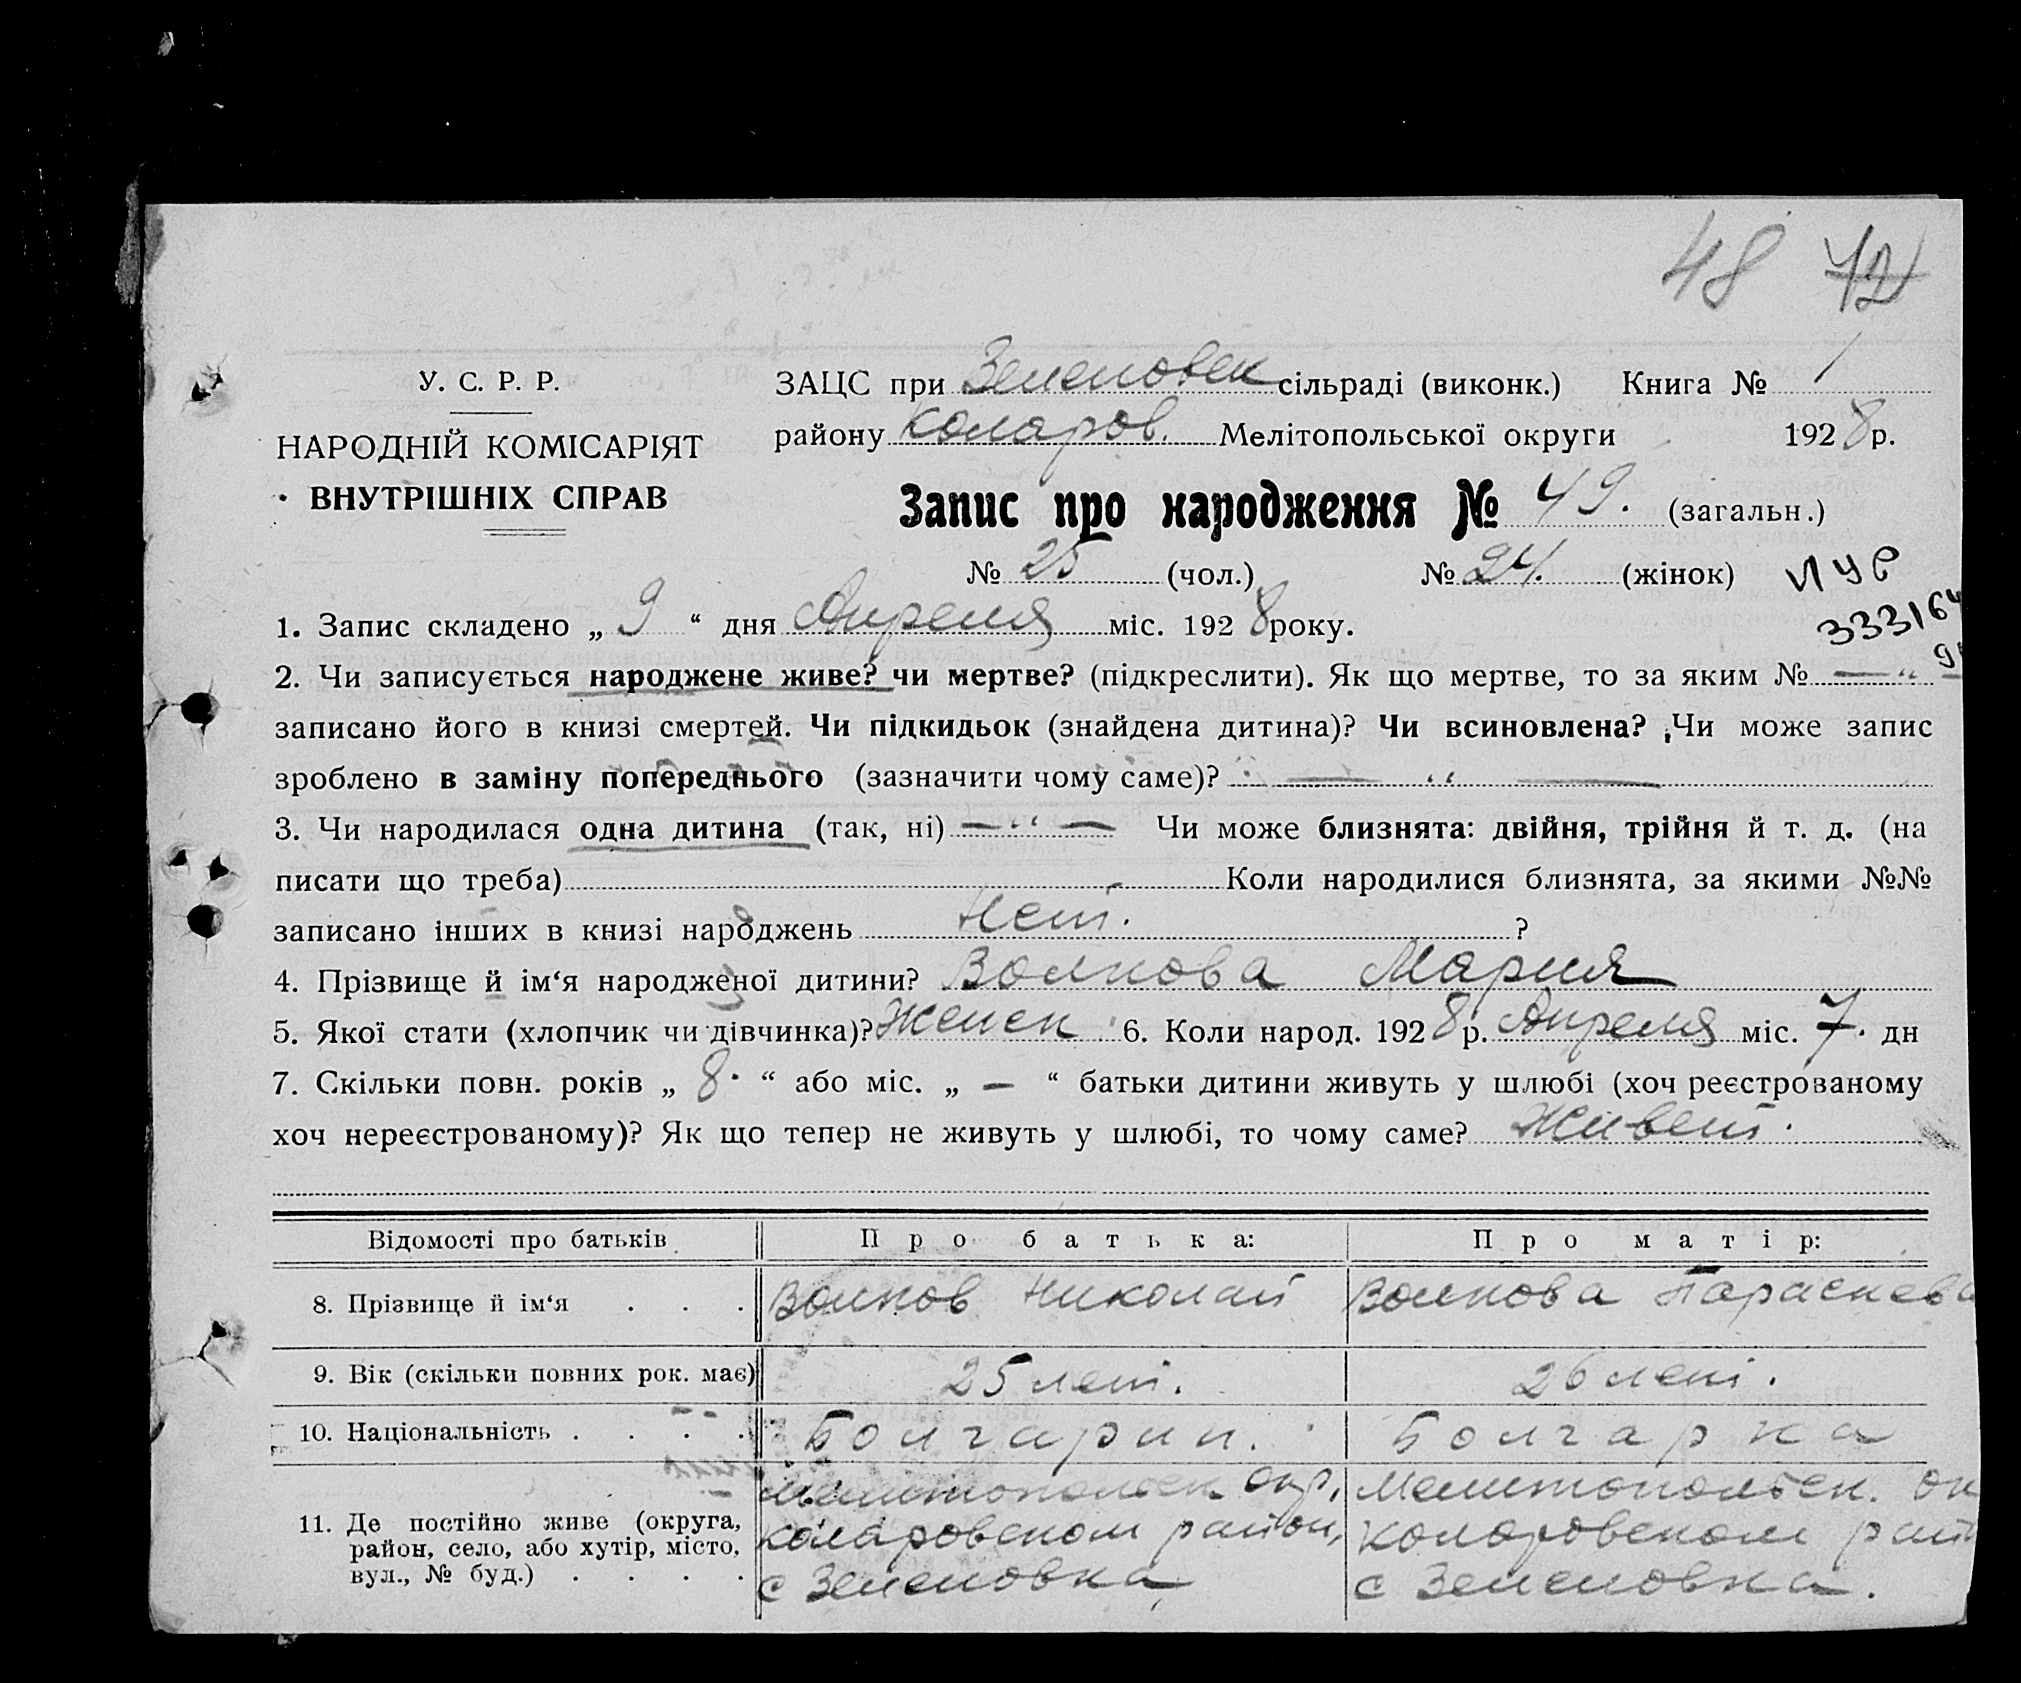 48 42
У. С. Р. Р.
ЗАЦС при Зеленовск сільраді (виконк.) Книга № 1
району Коларов. Мелітопольської округи 1928 р.
НАРОДНІЙ КОМІСАРІЯТ
ВНУТРІШНІХ СПРАВ
Запис про народження № 49. (загальн.)
№ 25 (чол.) № 24. (жінок)
333164
1. Запис складено „ 9 “ дня Апреля міс. 1928 року.
2. Чи записується народжене живе? чи мертве? (підкреслити). Як що мертве, то за яким № — „ —
записано його в книзі смертей. Чи підкидьок (знайдена дитина)? Чи всиновлена? Чи може запис
зроблено в заміну попереднього (зазначити чому саме)? — „ —
3. Чи народилася одна дитина (так, ні) — „ — Чи може близнята: двійня, трійня й т. д. (на
писати що треба) Коли народилися близнята, за якими №№
записано інших в книзі народжень Нет. ?
4. Прізвище й ім‘я народженої дитини? Волкова Мария
5. Якої стати (хлопчик чи дівчинка)? Женск 6. Коли народ. 1928 р. Апреля міс. 7. дн
7. Скільки повн. років „ 8. “ або міс. „ — “ батьки дитини живуть у шлюбі (хоч реєстрованому
хоч нереєстрованому)? Як що тепер не живуть у шлюбі, то чому саме? Живет.
Відомості про батьків Про батька: Про матір:
8. Прізвище й ім‘я . . . Волков Николай Волкова Параскева
9. Вік (скільки повних рок. має) 25 лет. 26 лет.
10. Національність . . . . Болгарин. Болгарка
11. Де постійно живе (округа, район, село, або хутір, місто, вул., № буд.) . . . .
Мелитопольск окр, Мелитопольск. ок
Коларовском район, Коларовском рай
с Зеленовка с Зеленовка.